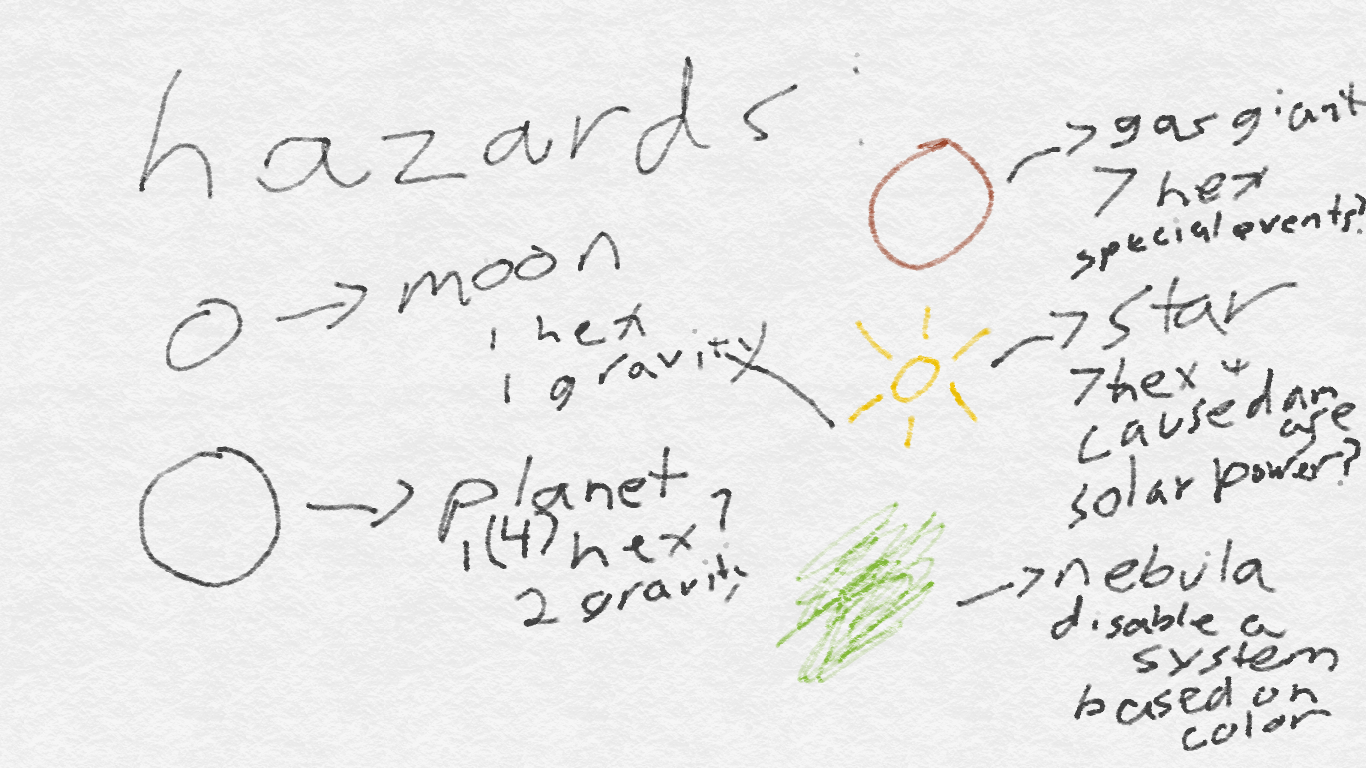 hazards:
moon
1 hex
1 gravity
planet
1(4) hex?
2 gravity
gas giant
7 hex
special events?
star
7 hex +
cause dam
age
solar power?
nebula
disable a
system
based on
color